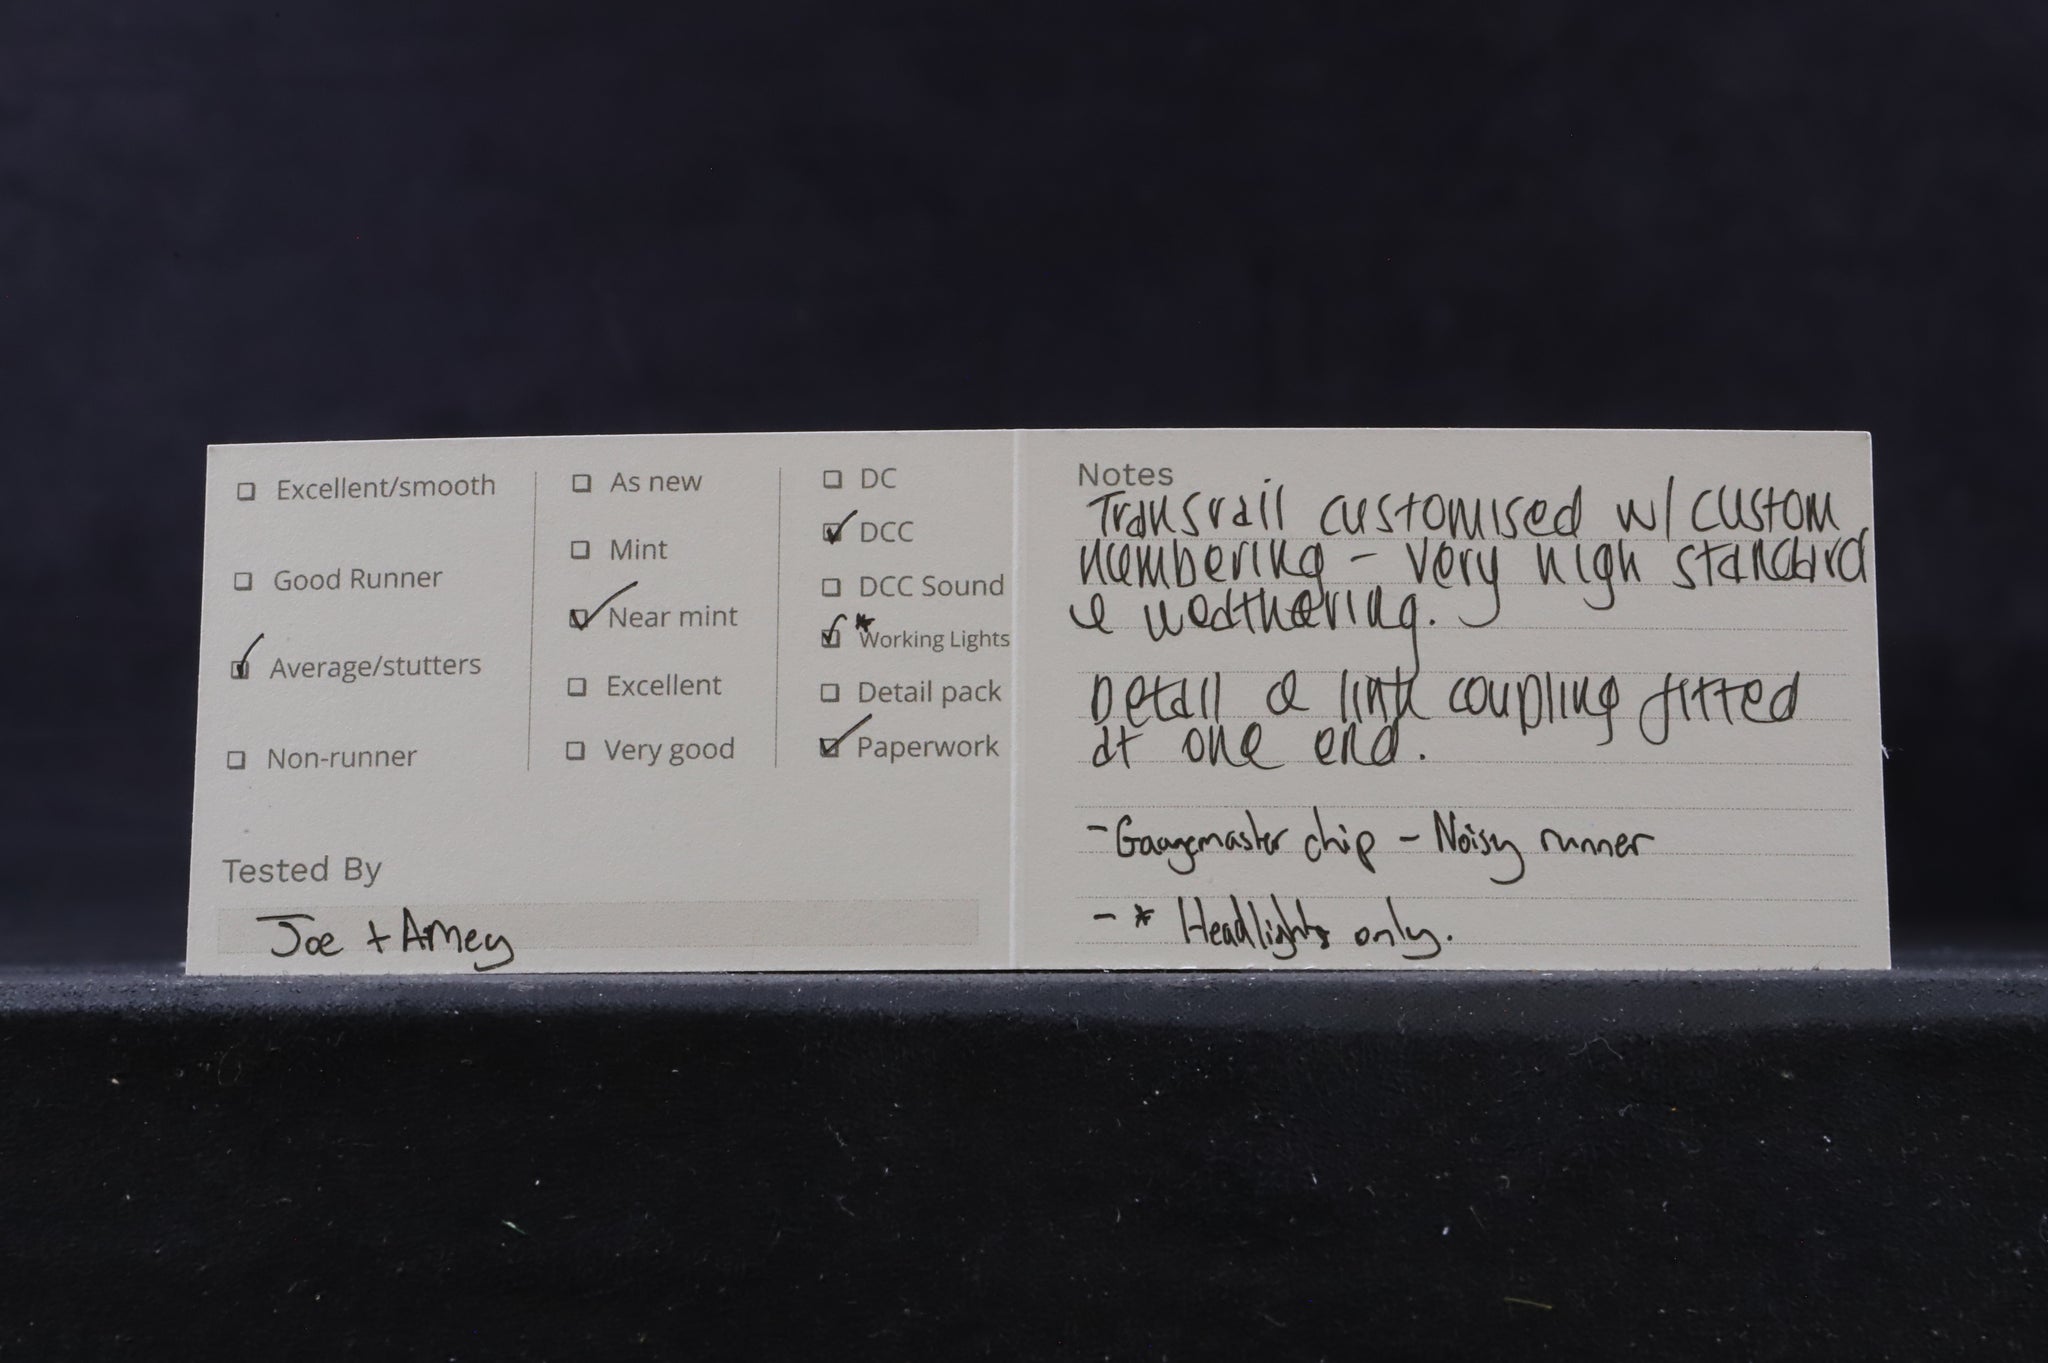 Excellent/smooth
Good Runner
Average/stutters
Non-runner
As new
Mint
Near mint
Excellent
Very good
DC
DCC
DCC Sound
*Working Lights
Detail pack
Paperwork
Tested By
Joe + Amey
Notes
Transrail customised w/ custom
numbering - very high standard
& weathering.
Detail & link coupling fitted
at one end.
- Gaugemaster chip - Noisy runner
- * Headlights only.